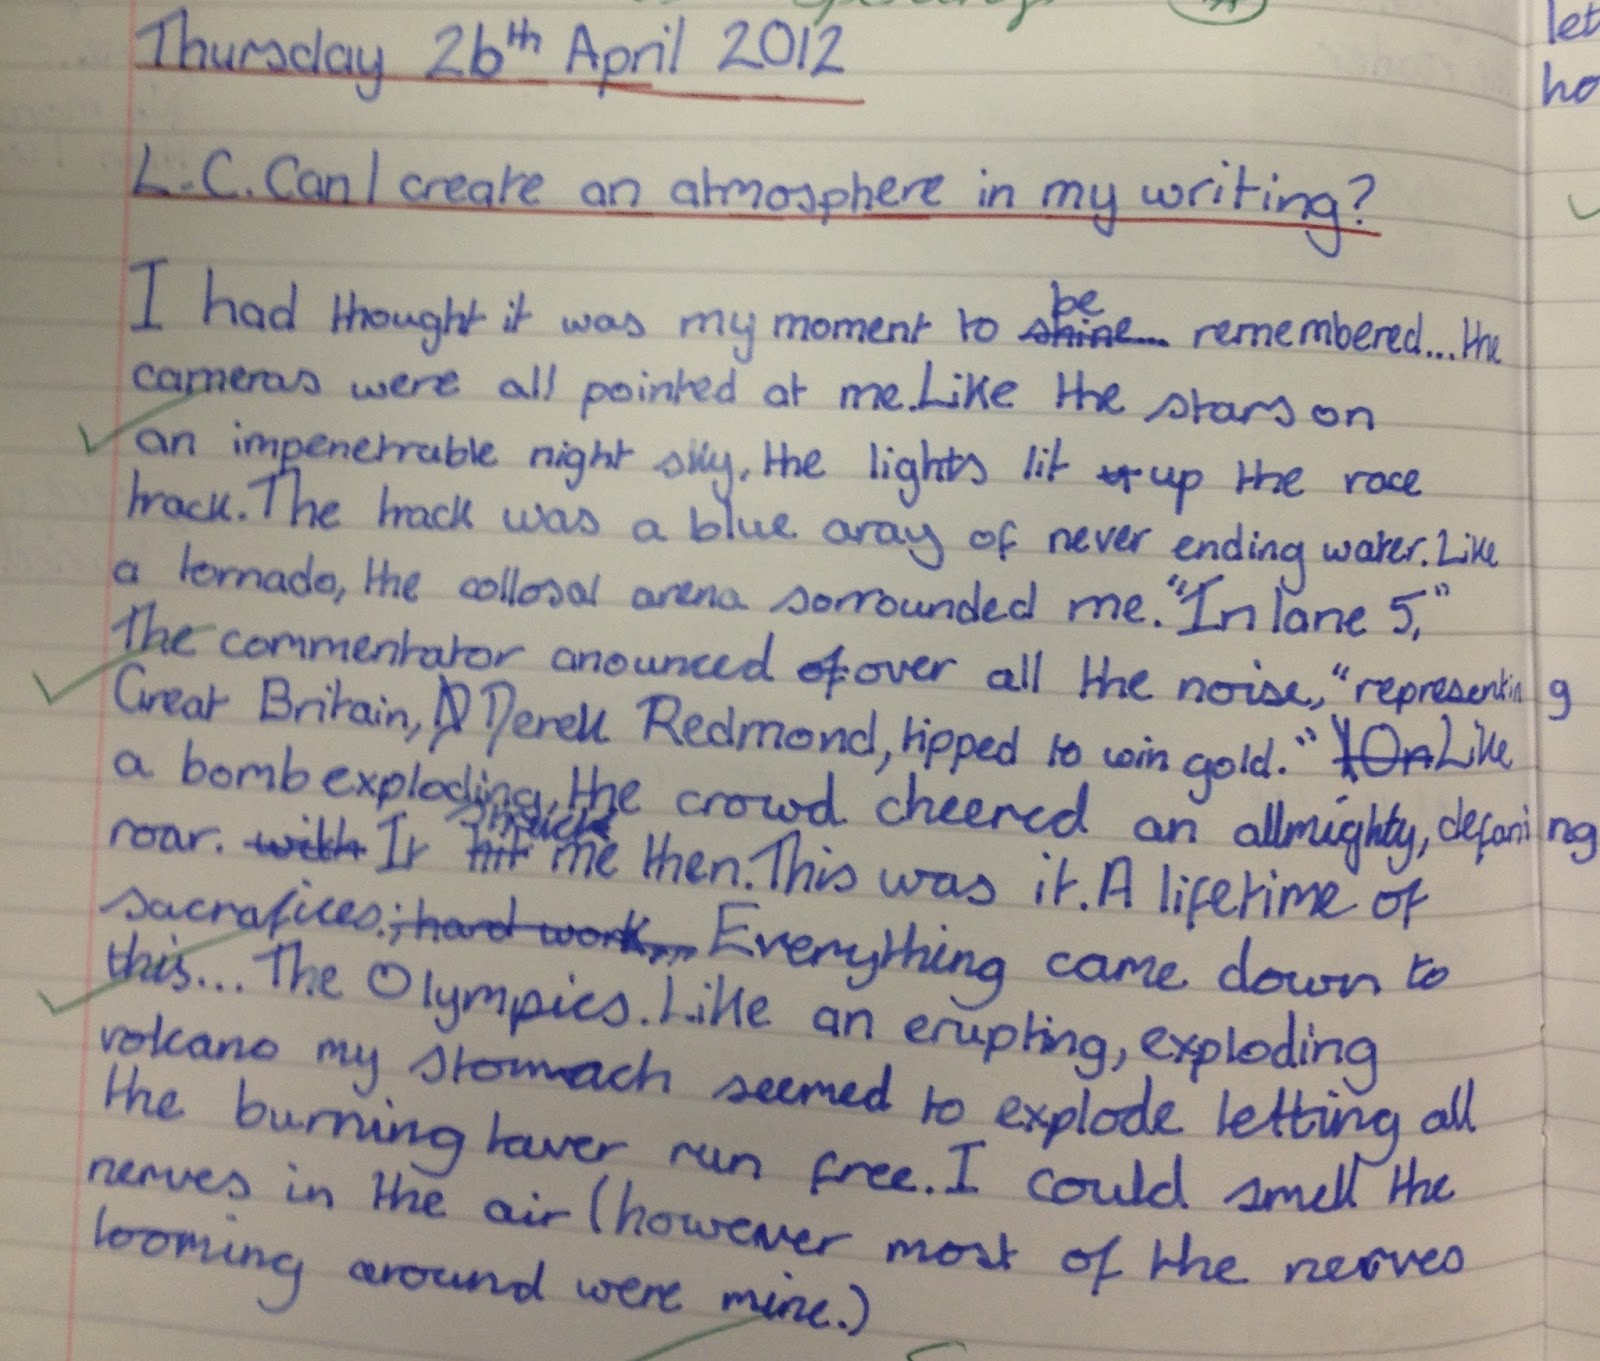 Thursday 26th April 2012
L.C. Can I create an atmosphere in my writing?
I had thought it was my moment to shine... be remembered...the
cameras were all pointed at me.Like the stars on
an impenetrable night sky, the lights lit up the race
track.The track was a blue aray of never ending water.Like
a tornado, the collosal arena sorrounded me."In lane 5,"
The commentator anounced of over all the noise,"representing
Great Britain, D Derek Redmond, tipped to win gold." On Like
a bomb exploding, the crowd cheered an allmighty, defaning
roar. with It hit struck me then.This was it.A lifetime of
sacrafices.;hard work,,, Everything came down to
this...The Olympics.Like an erupting, exploding
volcano my stomach seemed to explode letting all
the burning laver run free.I could smell the
nerves in the air (however most of the nerves
looming around were mine.)
let
ho